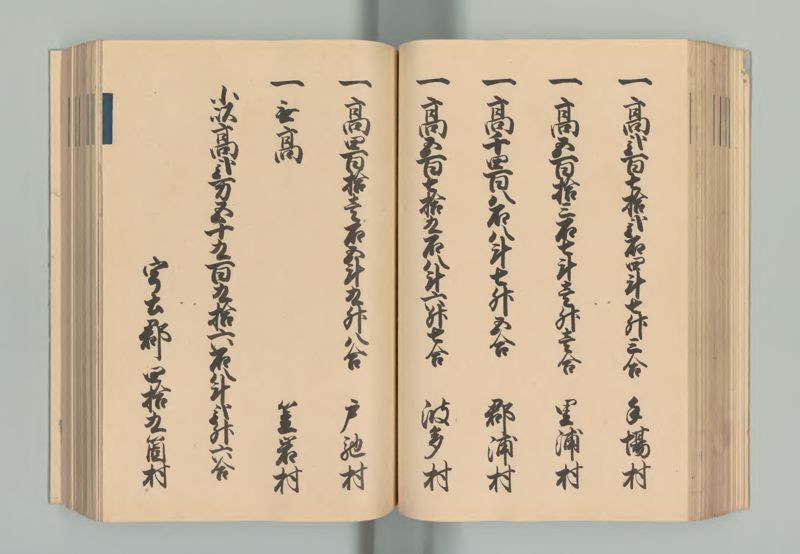 一高弐百七拾弐石四斗七升三合 手場村
一高五百拾三石七斗壱升壱合 里浦村
一高千四百八石八斗七升五合 郡浦村
一高五百七拾九石八斗六升七合 波多村
一高四百拾壱石五斗九升八合 戸馳村
一無高 笠岩村
小以高弐万五千九百九拾六石八斗弐升六合
宇土郡四拾九箇村